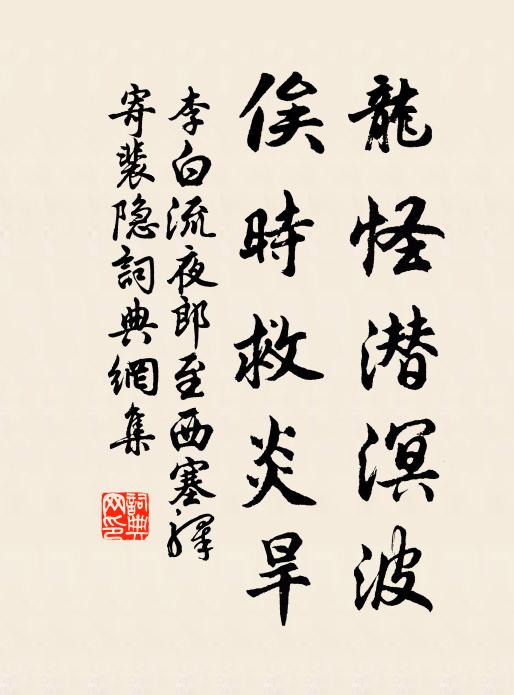 龍怪潜溟波
俟時救炎旱
李白流夜郎至西塞驛
寄裴隐詞典網集
詞典
网印